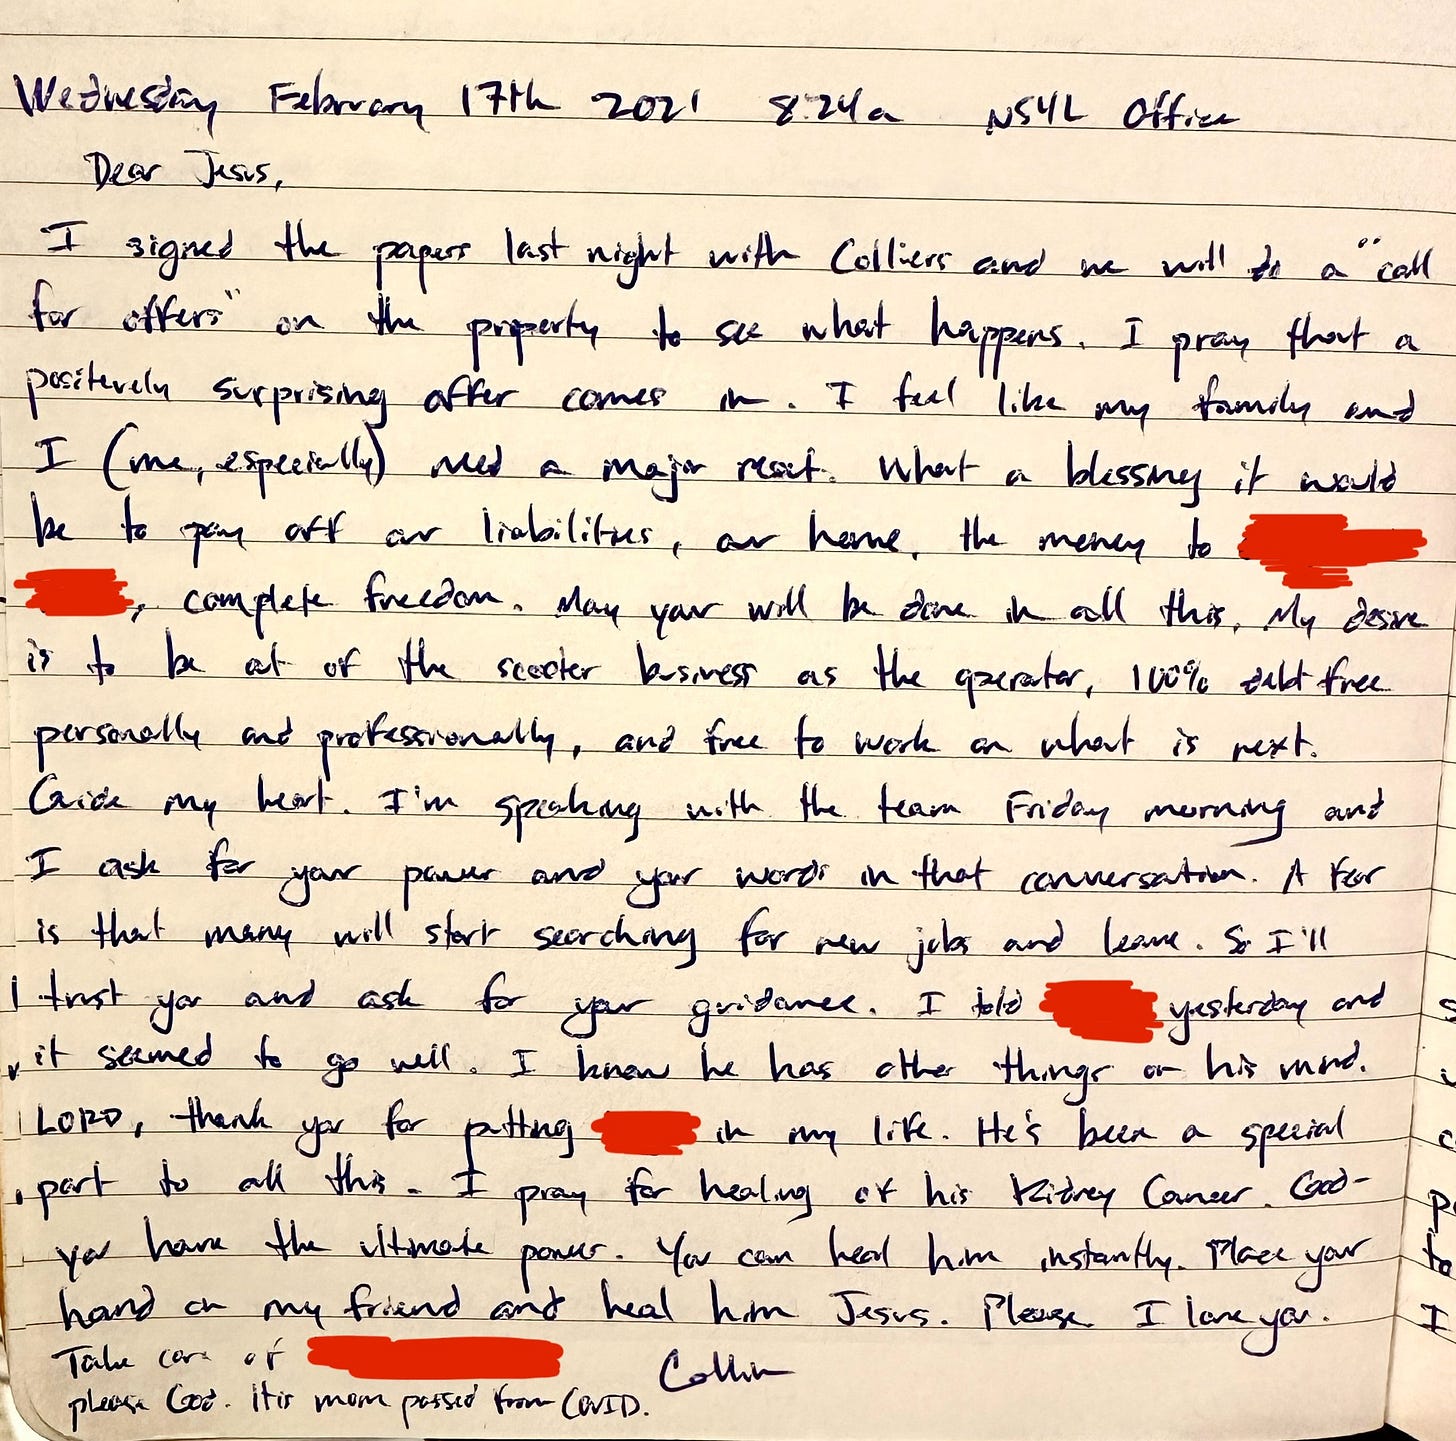 Wednesday February 17th 2021 8:24a NS4L Office
Dear Jesus,
I signed the papers last night with Colliers and we will do a "call
for offers" on the property to see what happens. I pray that a
positively surprising offer comes in. I feel like my family and
I (me, especially) need a major reset. What a blessing it would
be to pay off our liabilities, our home, the money to
, complete freedom. May your will be done in all this. My desire
is to be out of the scooter business as the operator, 100% debt free
personally and professionally, and free to work on what is next.
Guide my heart. I'm speaking with the team Friday morning and
I ask for your power and your words in that conversation. A fear
is that many will start searching for new jobs and leave. So I'll
trust you and ask for your guidance. I told yesterday and
it seemed to go well. I know he has other things on his mind.
LORD, thank you for putting in my life. He's been a special
part to all this. I pray for healing of his Kidney Cancer. God-
you have the ultimate power. You can heal him instantly. Place your
hand on my friend and heal him Jesus. Please. I love you.
Take care of
Collin
please God. His mom passed from COVID.